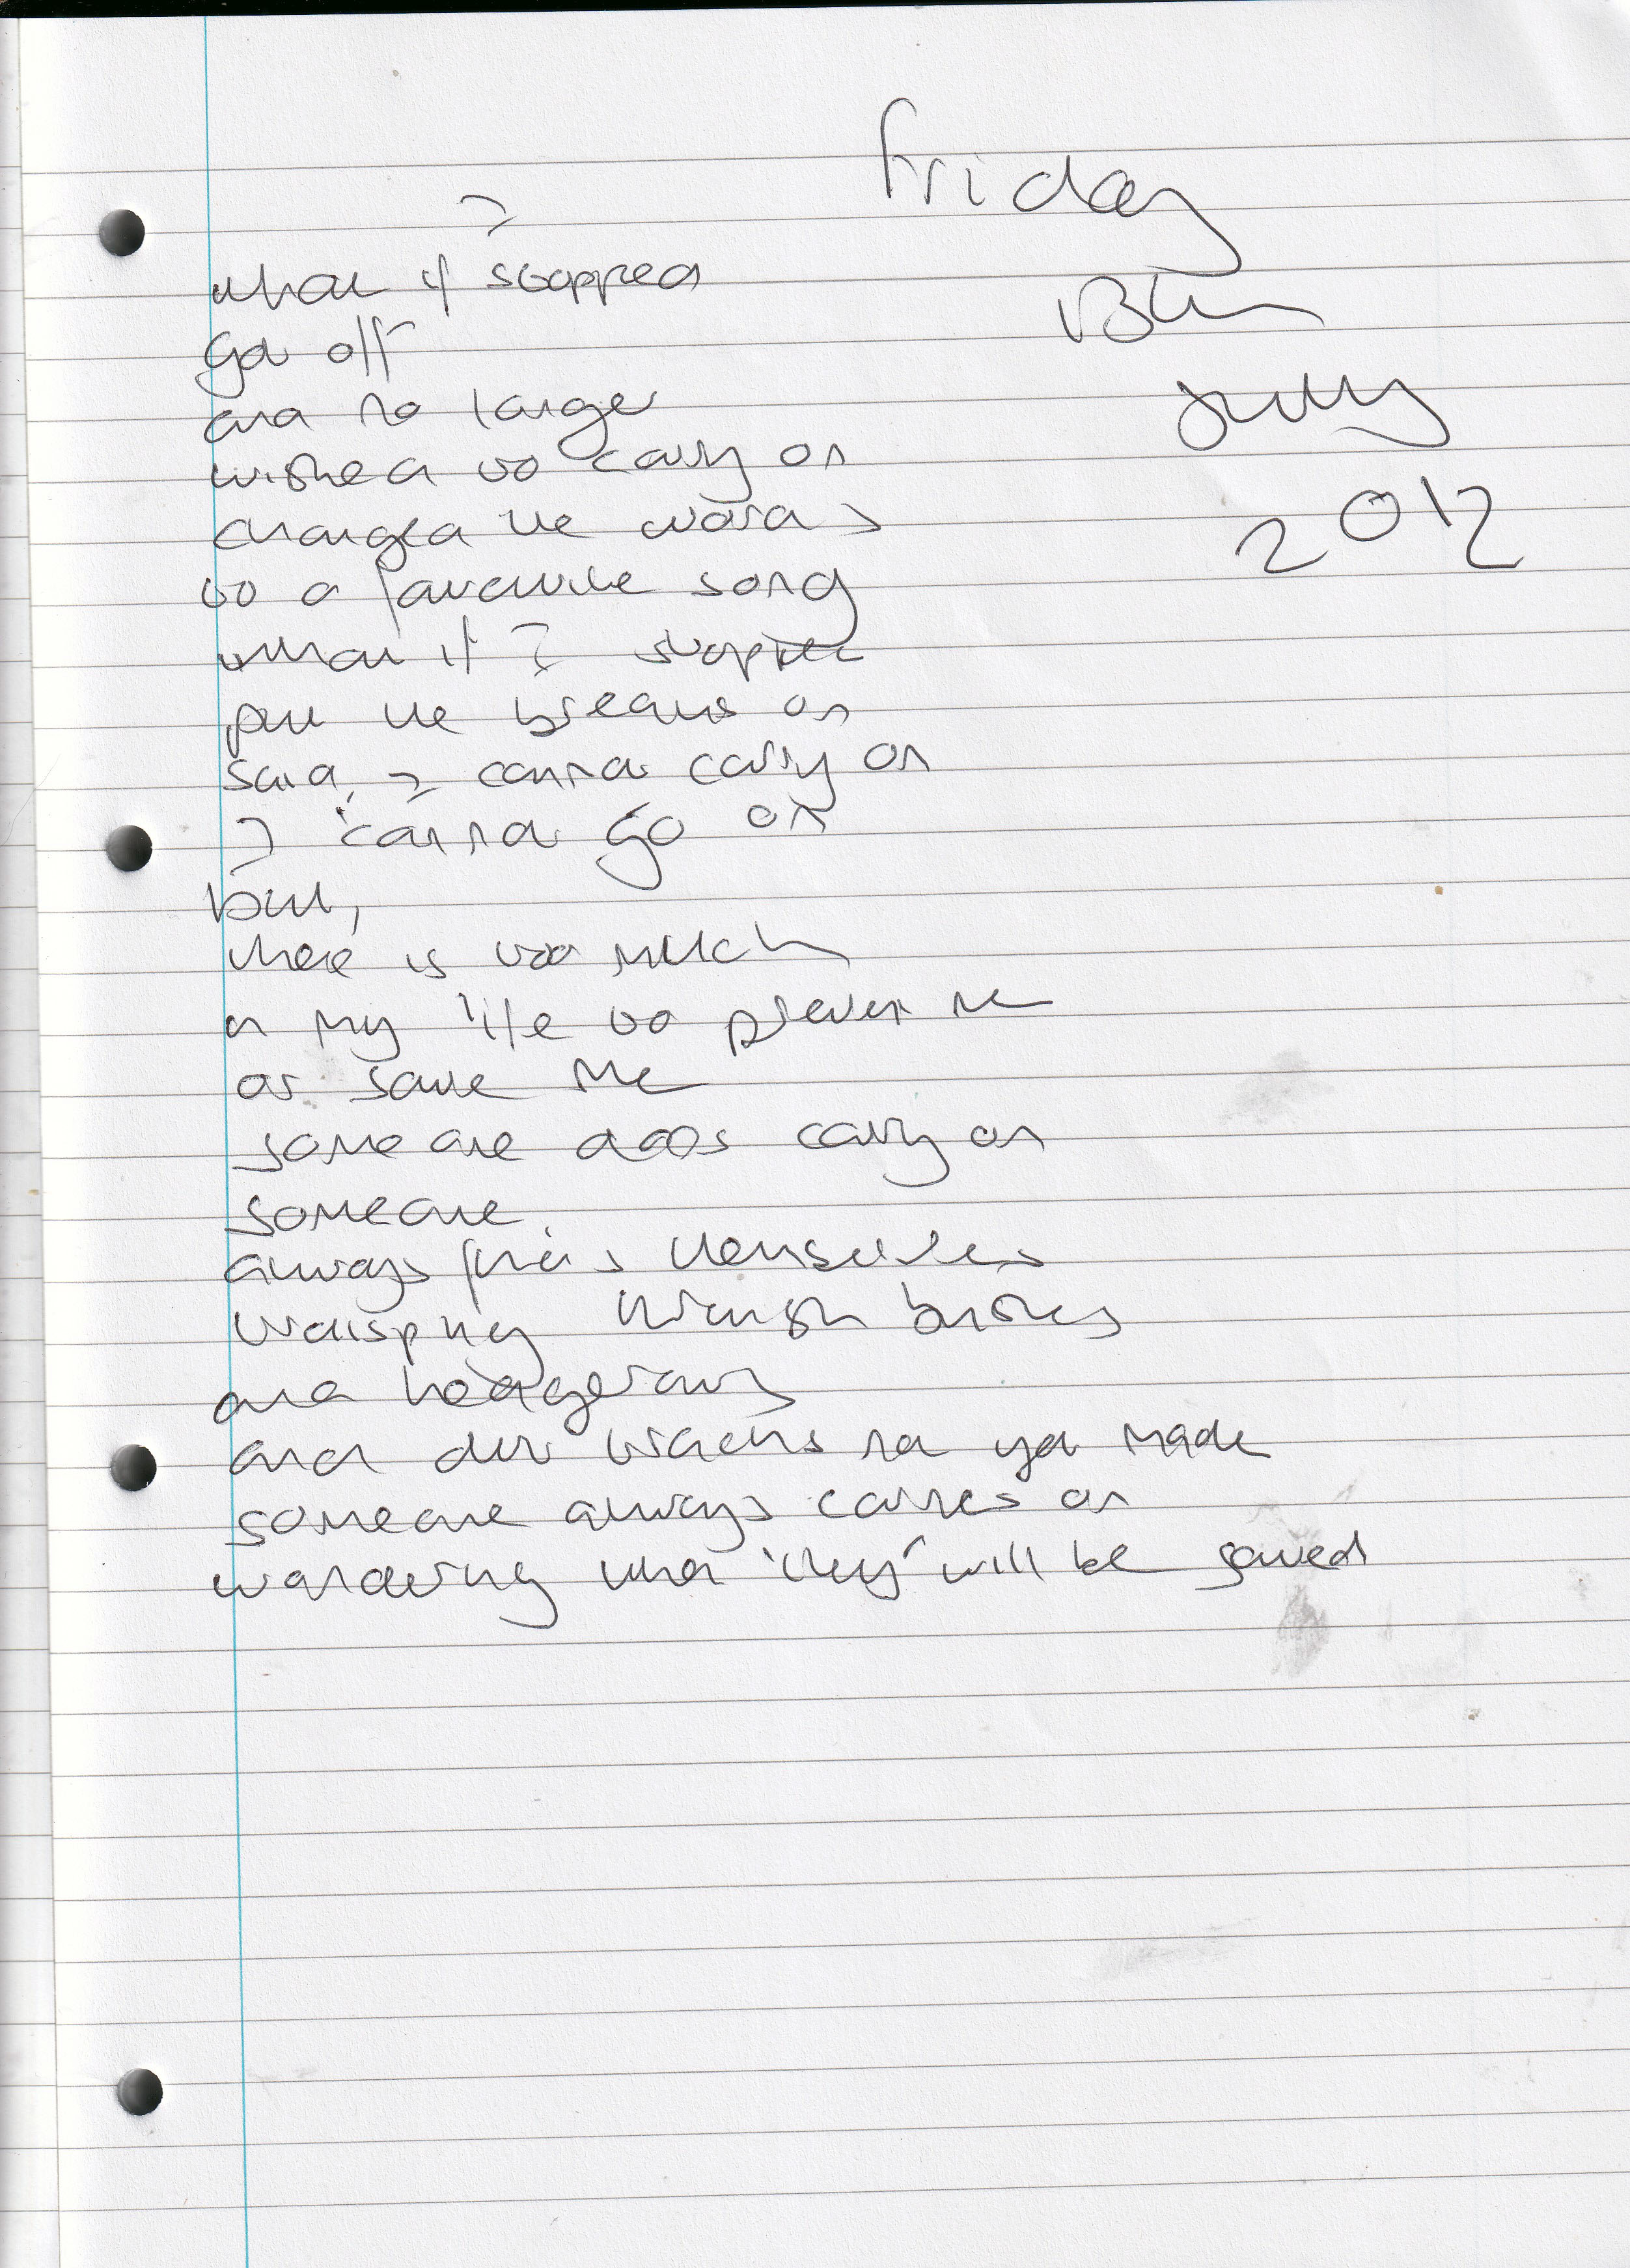 Friday
13th
July
2012
what if I stopped
Got off
and no longer
wished to carry on
changed the words
to a favourite song
what if I stopped
put the breaks on
said, I cannot carry on
I cannot go on
but,
there is too much
in my life to prevent me
or save me
someone does carry on
someone
always finds themselves
through bushes
and hedgerows
and over tracks not yet made
someone always carries on
wondering when 'they' will be saved